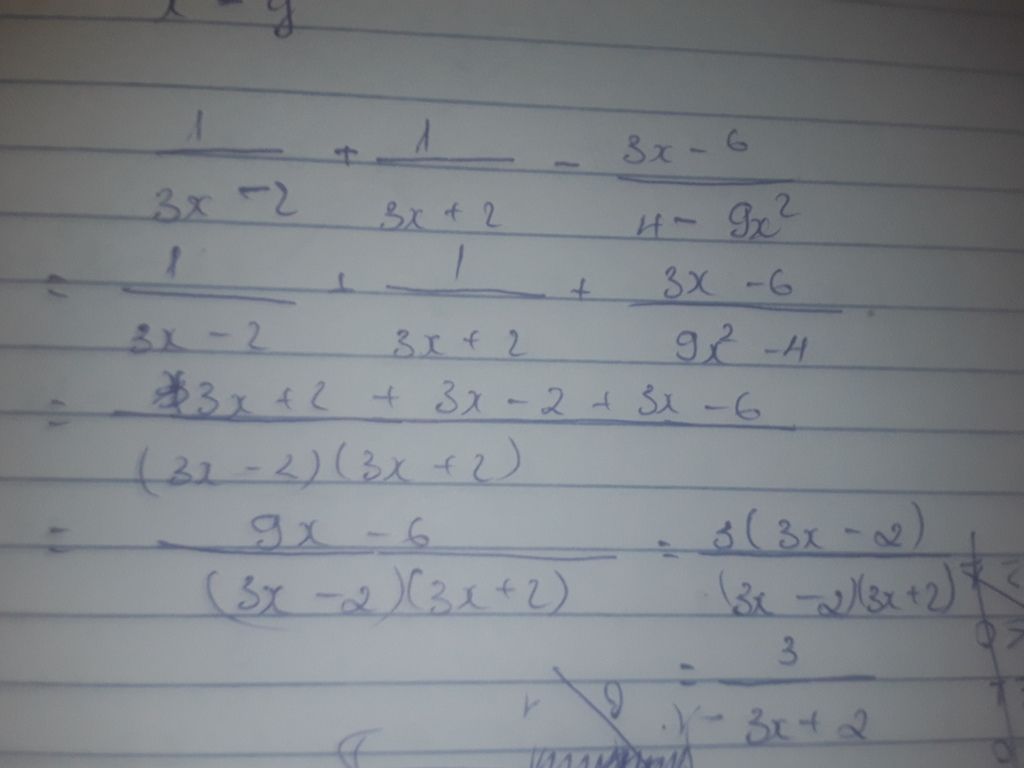 x - y
1/(3x - 2) + 1/(3x + 2) - (3x - 6)/(4 - 9x²)
= 1/(3x - 2) + 1/(3x + 2) + (3x - 6)/(9x² - 4)
= (3x + 2 + 3x - 2 + 3x - 6)/((3x - 2)(3x + 2))
= (9x - 6)/((3x - 2)(3x + 2)) = 3(3x - 2)/((3x - 2)(3x + 2))
= 3/(3x + 2)